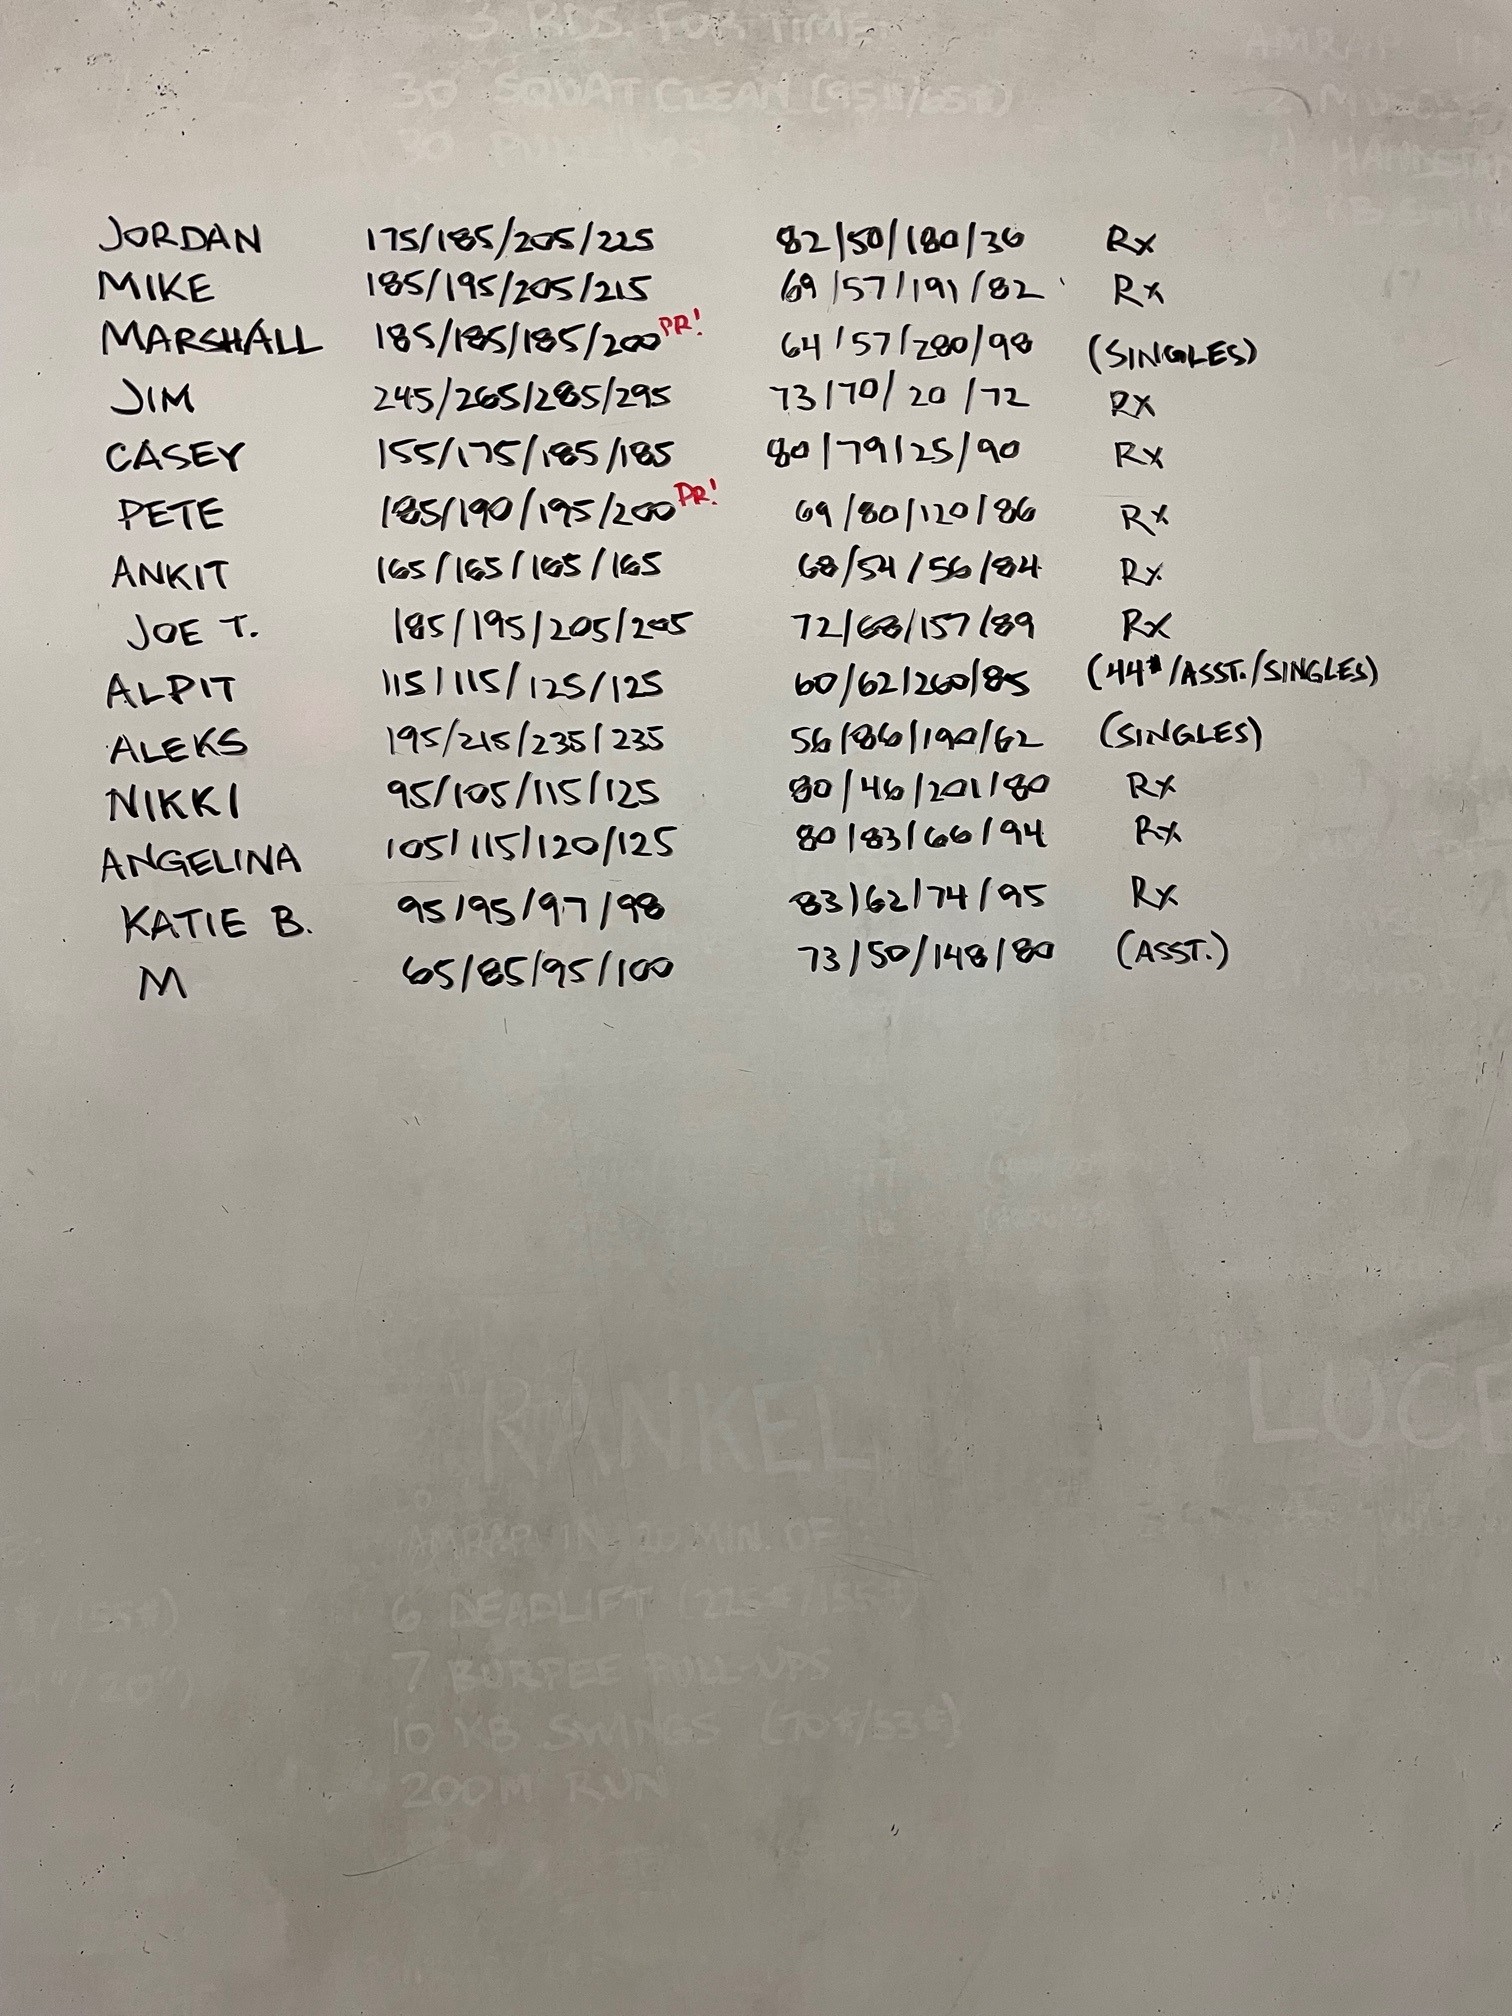 3 RDS. FOR TIME
30 SQUAT CLEAN (95#/65#)
30 PULL-UPS
AMRAP IN
JORDAN 175/185/205/225 82/50/180/36 Rx
MIKE 185/195/205/215 69/57/191/82 Rx
MARSHALL 185/185/185/200 PR! 64/57/280/98 (SINGLES)
JIM 245/265/285/295 73/70/20/72 Rx
CASEY 155/175/185/185 80/79/25/90 Rx
PETE 185/190/195/200 PR! 69/80/120/86 Rx
ANKIT 165/165/165/165 68/54/56/84 Rx
JOE T. 185/195/205/205 72/68/157/89 Rx
ALPIT 115/115/125/125 60/62/260/85 (44#/ASST./SINGLES)
ALEKS 195/215/235/235 56/86/190/62 (SINGLES)
NIKKI 95/105/115/125 80/46/201/80 Rx
ANGELINA 105/115/120/125 80/83/66/94 Rx
KATIE B. 95/95/97/98 83/62/74/95 Rx
M 65/85/95/100 73/50/148/80 (ASST.)
"RANKEL"
AMRAP IN 20 MIN. OF:
6 DEADLIFT (225#/155#)
7 BURPEE PULL-UPS
10 KB SWINGS (70#/53#)
200M RUN